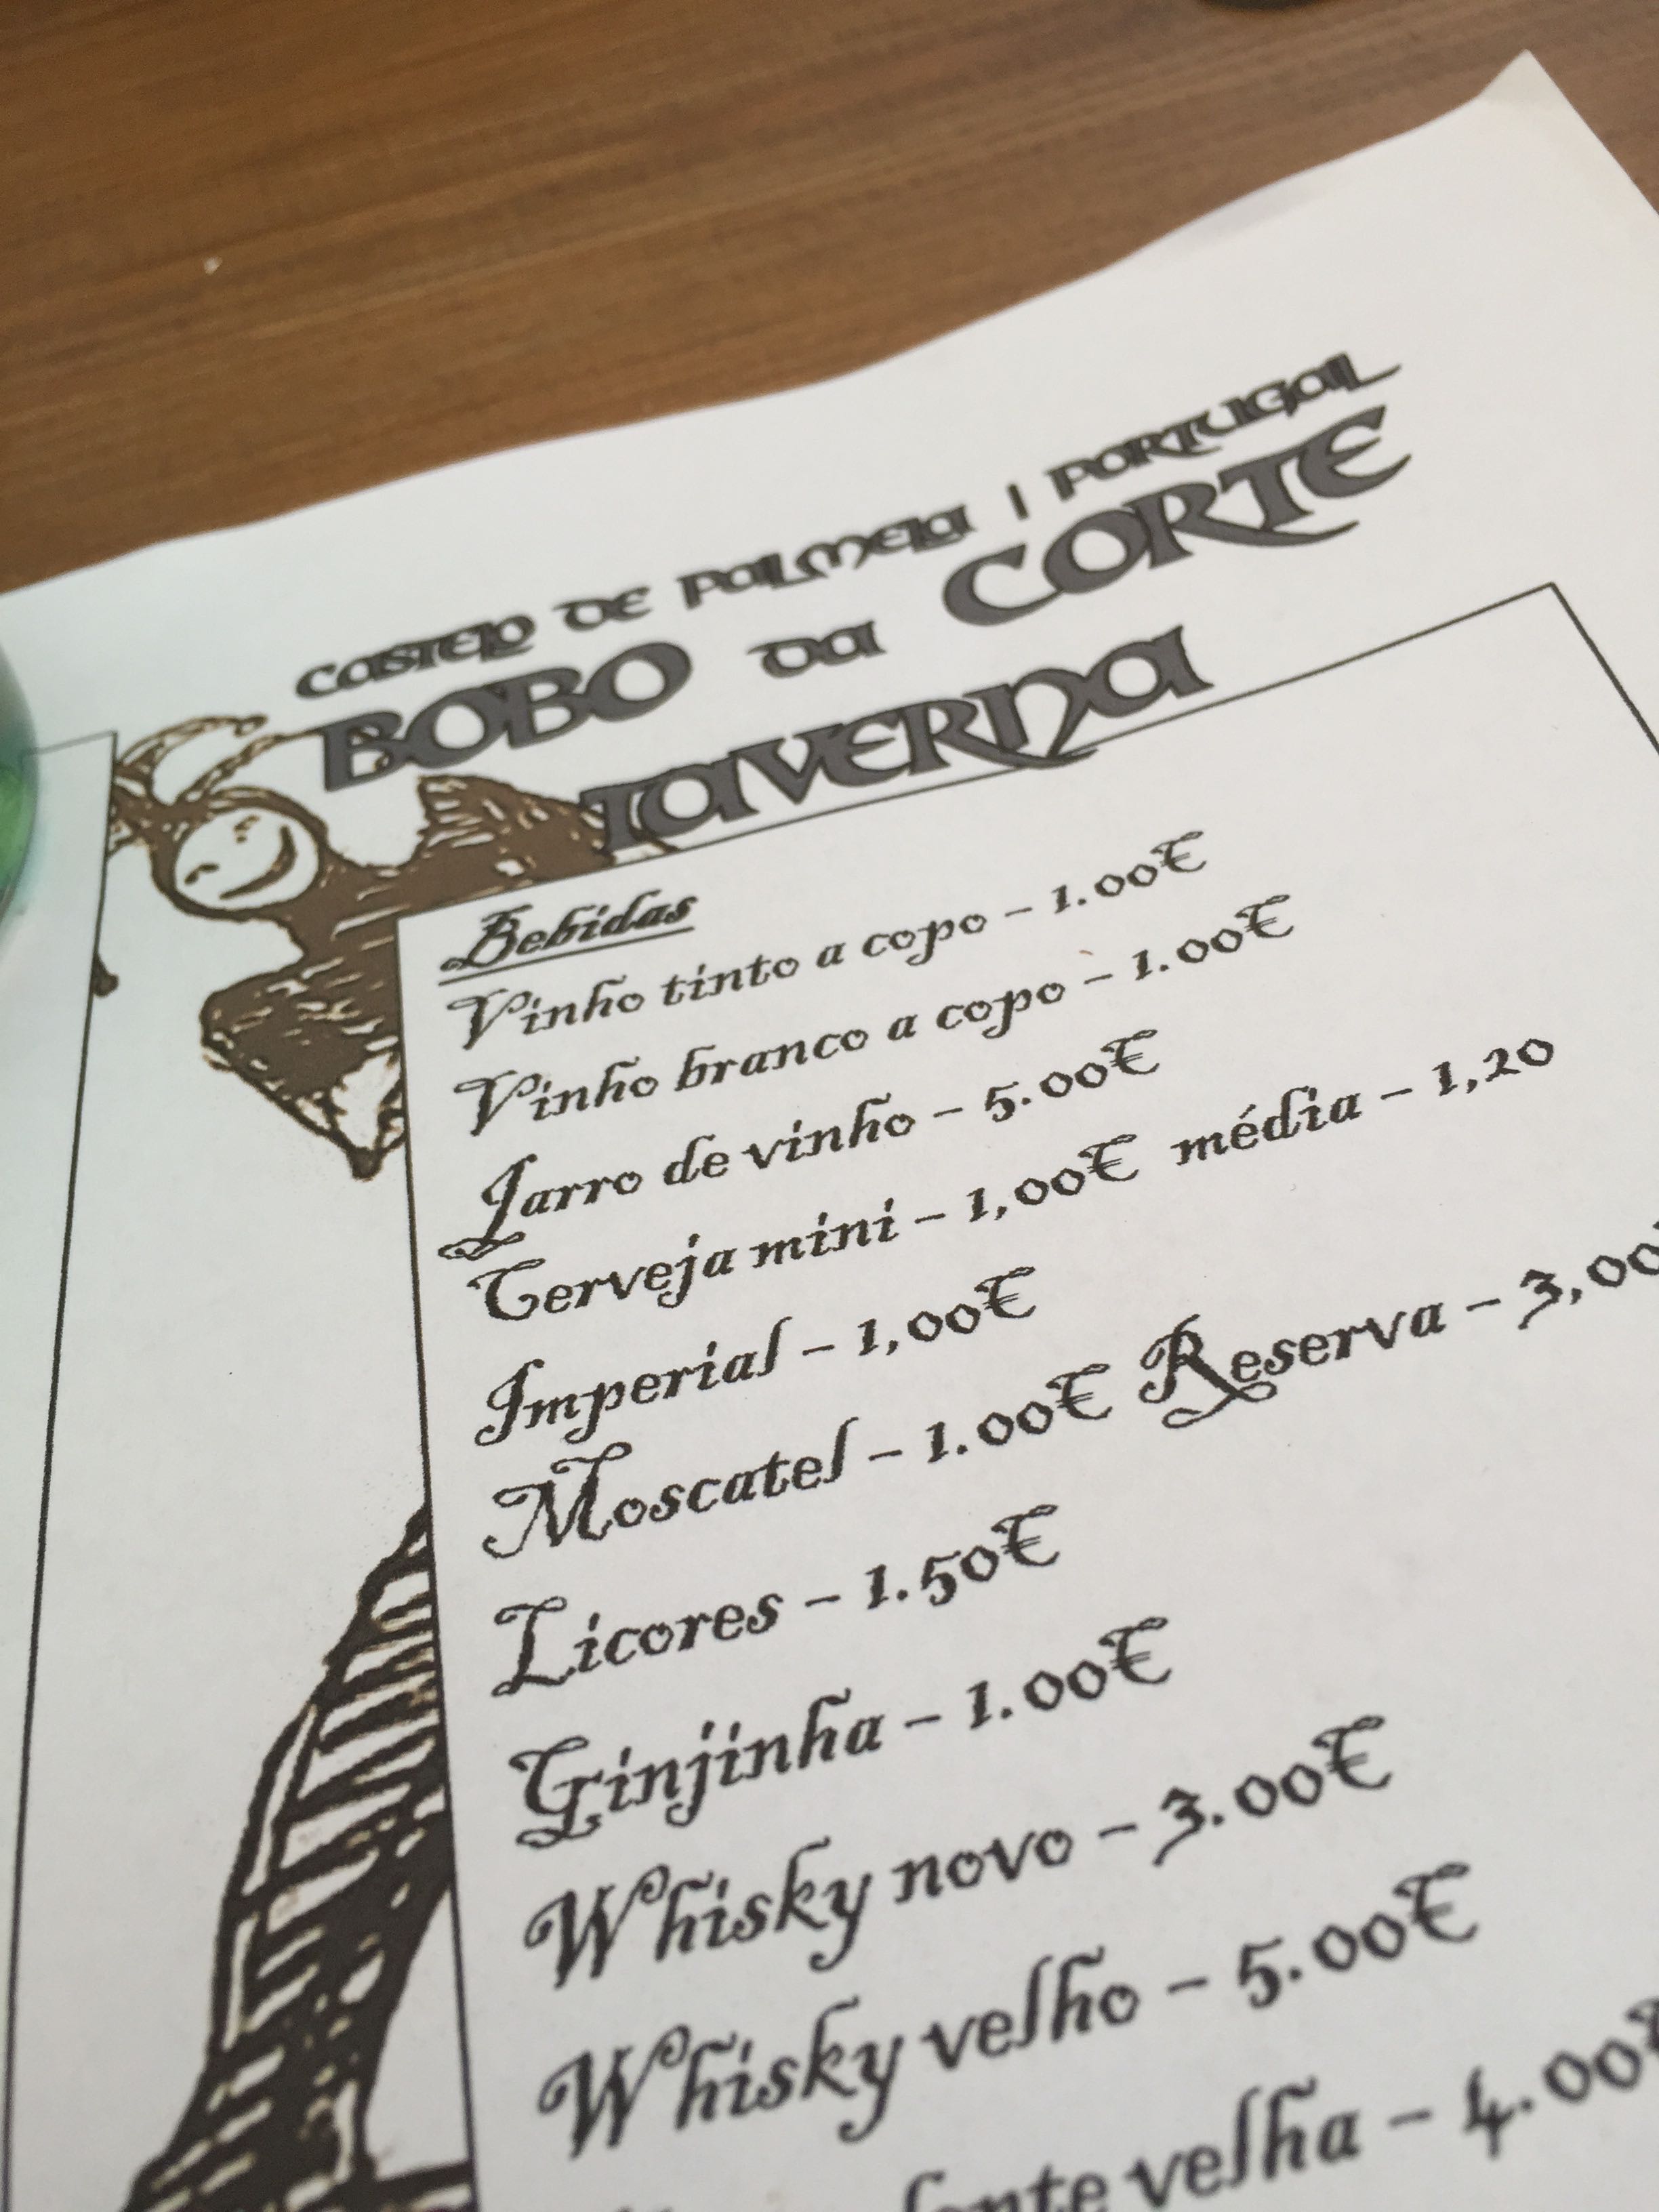 CASTELO DE PALMELA | PORTUGAL
BOBO DA CORTE
TAVERNA
Bebidas
Vinho tinto a copo - 1.00€
Vinho branco a copo - 1.00€
Jarro de vinho - 5.00€
Cerveja mini - 1,00€ média - 1,20
Imperial - 1,00€
Moscatel - 1.00€ Reserva - 3,00
Licores - 1.50€
Ginjinha - 1.00€
Whisky novo - 3.00€
Whisky velho - 5.00€
velha - 4.00€